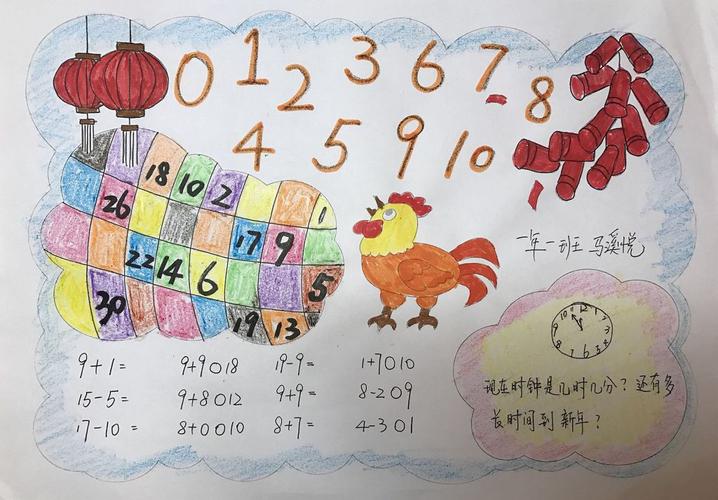 0 1 2 3 6 7 8
4 5 9 10
18 10 2 1
26 17 9
22 14 6 5
30 19 13
一年一班 马溪悦
10 12 1 2 3 4 5 6 7 8 9
9+1= 9+9○18 19-9= 1+7○10
15-5= 9+8○12 9+9= 8-2○9
17-10= 8+0○10 8+7= 4-3○1
现在时钟是几时几分?还有多
长时间到新年?